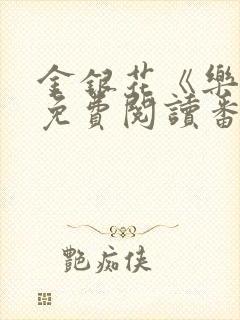 金銀花《樂
免費閱讀番
艷痴俠